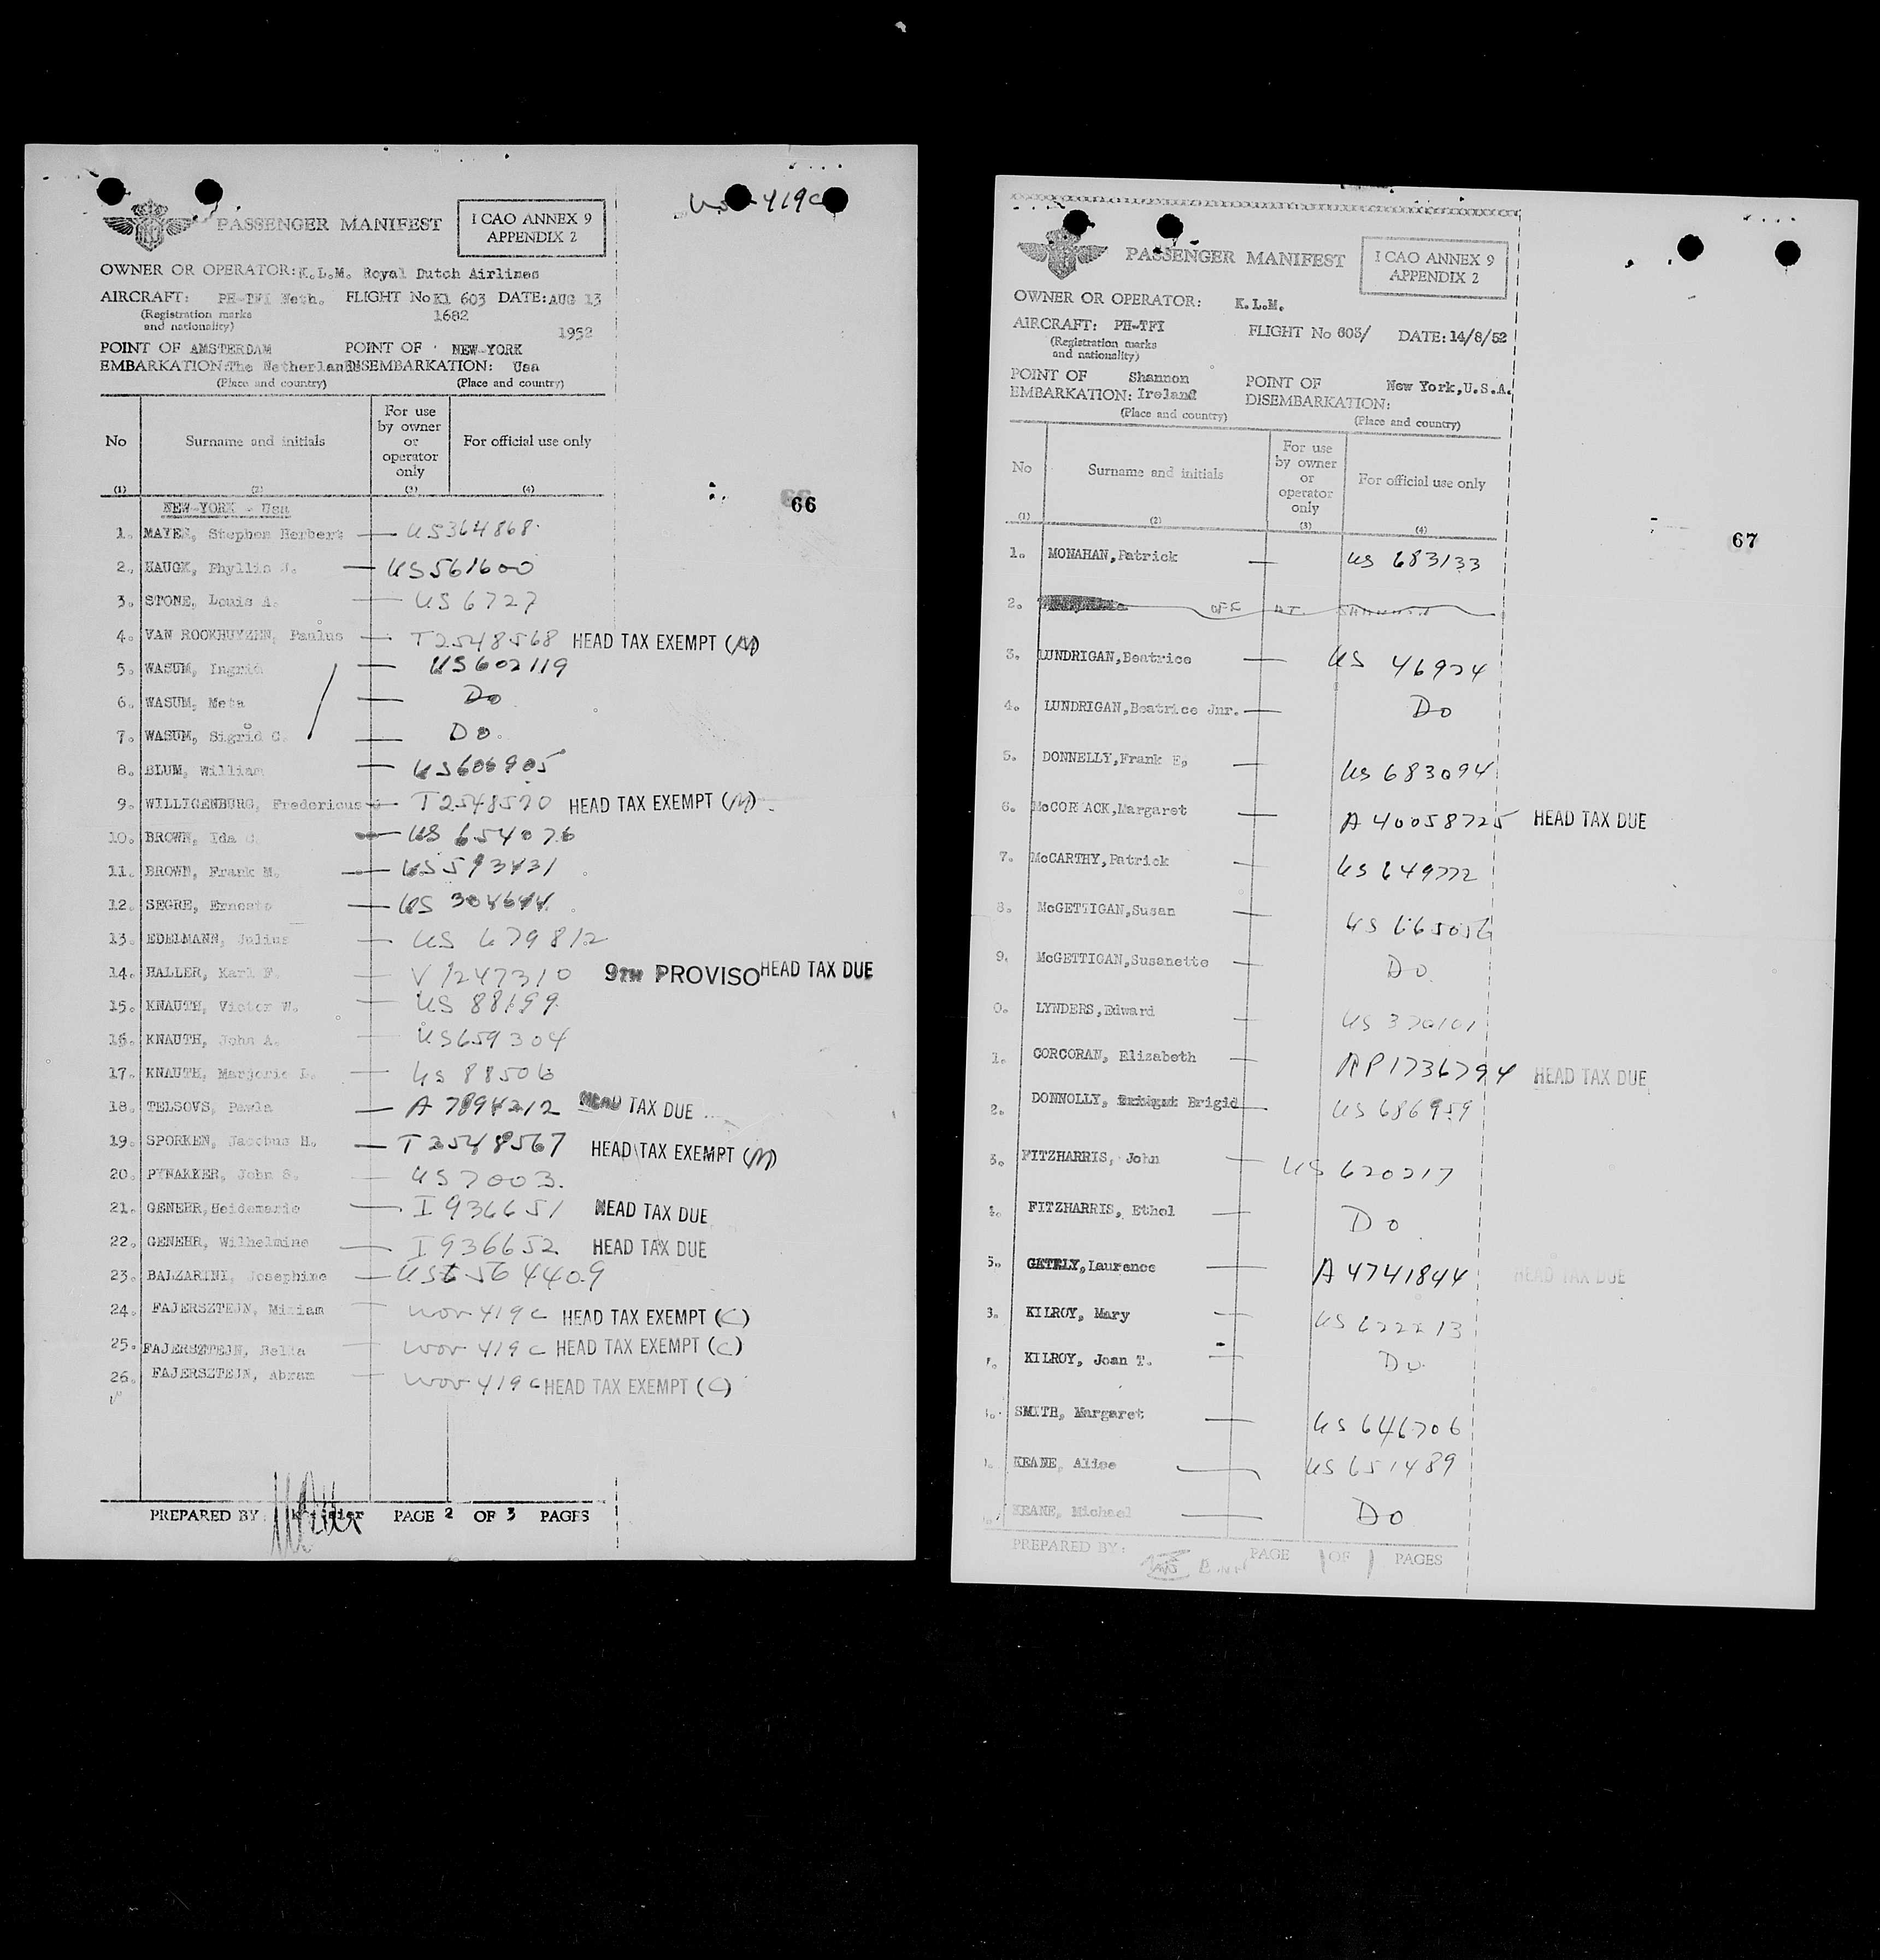 wor 419c
PASSENGER MANIFEST
I CAO ANNEX 9
APPENDIX 2
OWNER OR OPERATOR: K.L.M. Royal Dutch Airlines
AIRCRAFT: PH-TFI Neth. FLIGHT No Kl 603 DATE: AUG 13
(Registration marks 1682
and nationality) 1952
POINT OF AMSTERDAM POINT OF NEW-YORK
EMBARKATION: The Netherlands DISEMBARKATION: Usa
(Place and country) (Place and country)
No Surname and initials For use by owner or operator only For official use only
(1) (2) (3) (4)
66
NEW-YORK - Usa
1. MAYER, Stephen Herbert — US364868
2. HAUCK, Phyllis J. — US561600
3. STONE, Louis A. — US 6727
4. VAN ROOKHUYZEN, Paulus — T2548568 HEAD TAX EXEMPT (M)
5. WASUM, Ingrid — US602119
6. WASUM, Meta — Do
7. WASUM, Sigrid C. — Do.
8. BLUM, William — US606905
9. WILLIGENBURG, Fredericus — T2548570 HEAD TAX EXEMPT (M)
10. BROWN, Ida C. — US 654076
11. BROWN, Frank M. — US593431
12. SEGRE, Ernesto — US 304644
13. EDELMANN, Julius — US 679812
14. HALLER, Karl F. — V1247310 9TH PROVISO HEAD TAX DUE
15. KNAUTH, Victor W. — US 88199
16. KNAUTH, John A. — US659304
17. KNAUTH, Marjorie L. — US 88506
18. TELSOVS, Pawla — A 7894212 HEAD TAX DUE
19. SPORKEN, Jacobus H. — T2548567 HEAD TAX EXEMPT (M)
20. PYNAKKER, John S. — US7003.
21. GENEHR, Heidemarie — I 936651 HEAD TAX DUE
22. GENEHR, Wilhelmine — I936652 HEAD TAX DUE
23. BALZARINI, Josephine —
24. FAJERSZTEJN, Miriam — wor 419 c HEAD TAX EXEMPT (C)
25. FAJERSZTEJN, Bella — wor 419 c HEAD TAX EXEMPT (C)
26. FAJERSZTEJN, Abram — wor 419 c HEAD TAX EXEMPT (C)
PREPARED BY: PAGE 2 OF 3 PAGES
PASSENGER MANIFEST
I CAO ANNEX 9
APPENDIX 2
OWNER OR OPERATOR: K.L.M.
AIRCRAFT: PH-TFI FLIGHT No 603/ DATE: 14/8/52
(Registration marks
and nationality)
POINT OF Shannon POINT OF New York, U.S.A.
EMBARKATION: Ireland DISEMBARKATION:
(Place and country) (Place and country)
No Surname and initials For use by owner or operator only For official use only
(1) (2) (3) (4)
67
1. MONAHAN, Patrick — US 683133
2. OFF AT SHANNON
3. LUNDRIGAN, Beatrice — US 46924
4. LUNDRIGAN, Beatrice Jnr. — Do
5. DONNELLY, Frank E, — US 683094
6. McCORMACK, Margaret — A 40058725 HEAD TAX DUE
7. McCARTHY, Patrick — US 649772
8. McGETTIGAN, Susan — US 665056
9. McGETTIGAN, Susanette — Do.
0. LYNDERS, Edward — US 370101
1. CORCORAN, Elizabeth — AP1736794 HEAD TAX DUE
2. DONNOLLY, Brigid — US 686959
3. FITZHARRIS, John — US 620217
4. FITZHARRIS, Ethel — Do
5. GETELY, Laurence — A 4741844 HEAD TAX DUE
KILROY, Mary — US 622213
KILROY, Joan T. — Do.
SMITH, Margaret — US 646706
KEANE, Alice — US 651489
KEANE, Michael — Do
PREPARED BY: PAGE 1 OF 1 PAGES